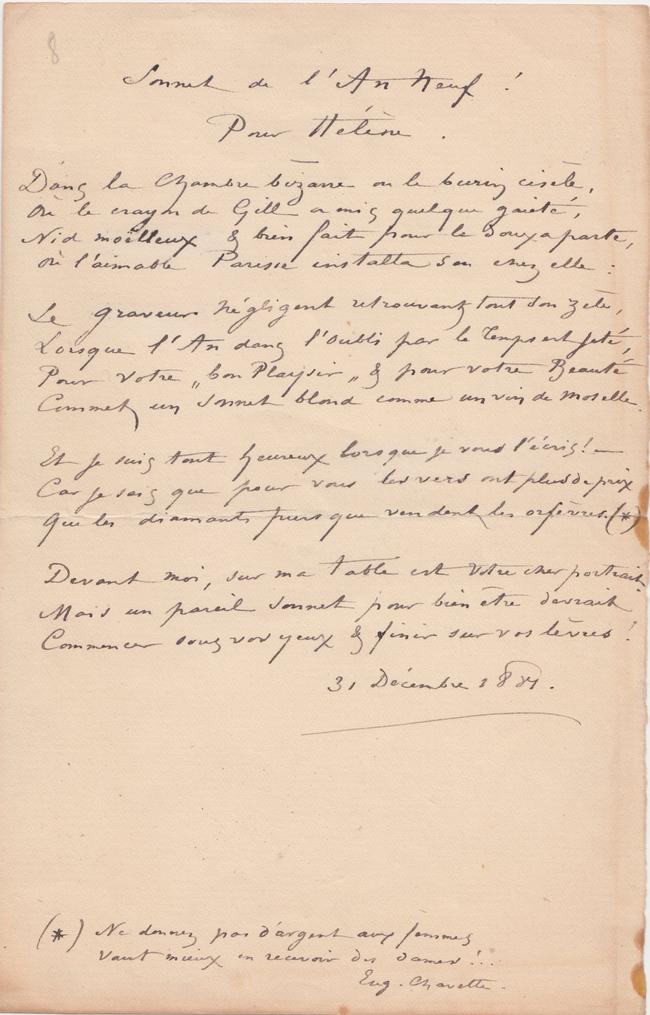 8
Sonnet de l'An Neuf !
Pour Hélène .
Dans la Chambre bizarre où le burin cisèle,
Où le crayon de Gill a mis quelque gaieté,
Nid moëlleux & bien fait pour le doux aparte,
Où l'aimable Paresse installa son chez elle :
Le graveur négligent retrouvant tout son zèle,
Lorsque l'An dans l'oubli par le Temps est jeté,
Pour votre „bon Plaisir„ & pour votre Beauté
Commet un Sonnet blond comme un vin de Moselle.
Et je suis tout heureux lorsque je vous l'écris ! —
Car je sais que pour vous les vers ont plus de prix
Que les diamants purs que vendent les orfèvres. (*)
Devant moi, sur ma table est votre cher portrait
Mais un pareil Sonnet pour bien être devrait
Commencer sous vos yeux & finir sur vos lèvres !
31 Décembre 1881.
(*) Ne donnez pas d'argent aux femmes
vaut mieux en recevoir des dames !..
Eug. Chavette.